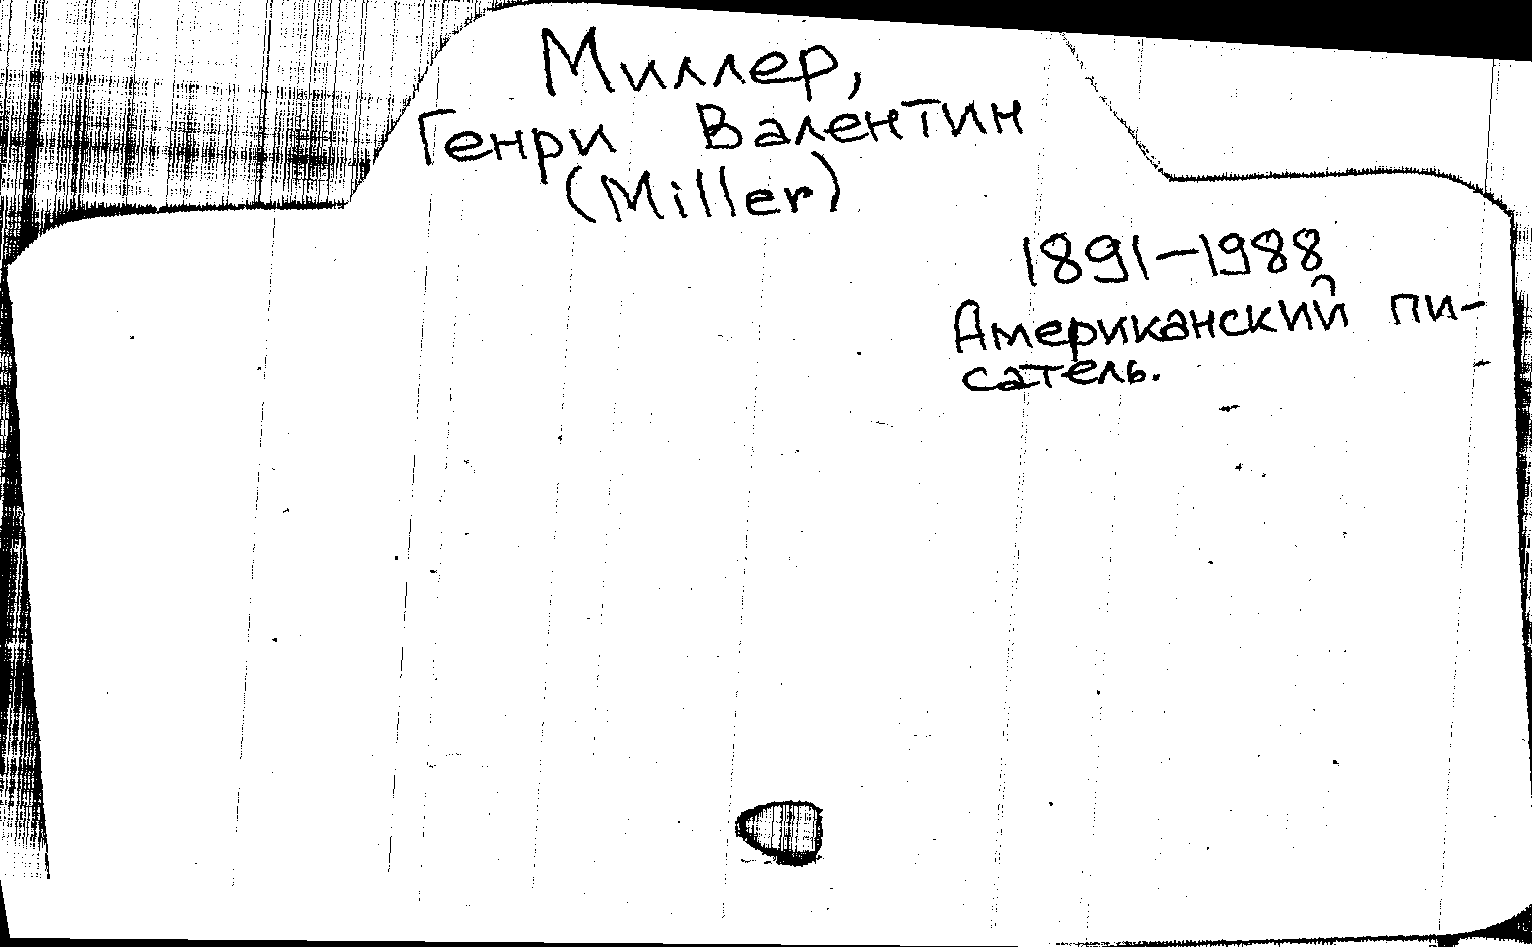 Миллер,
Генри Валентин
(Miller)
1891-1988
Американский пи-
сатель.